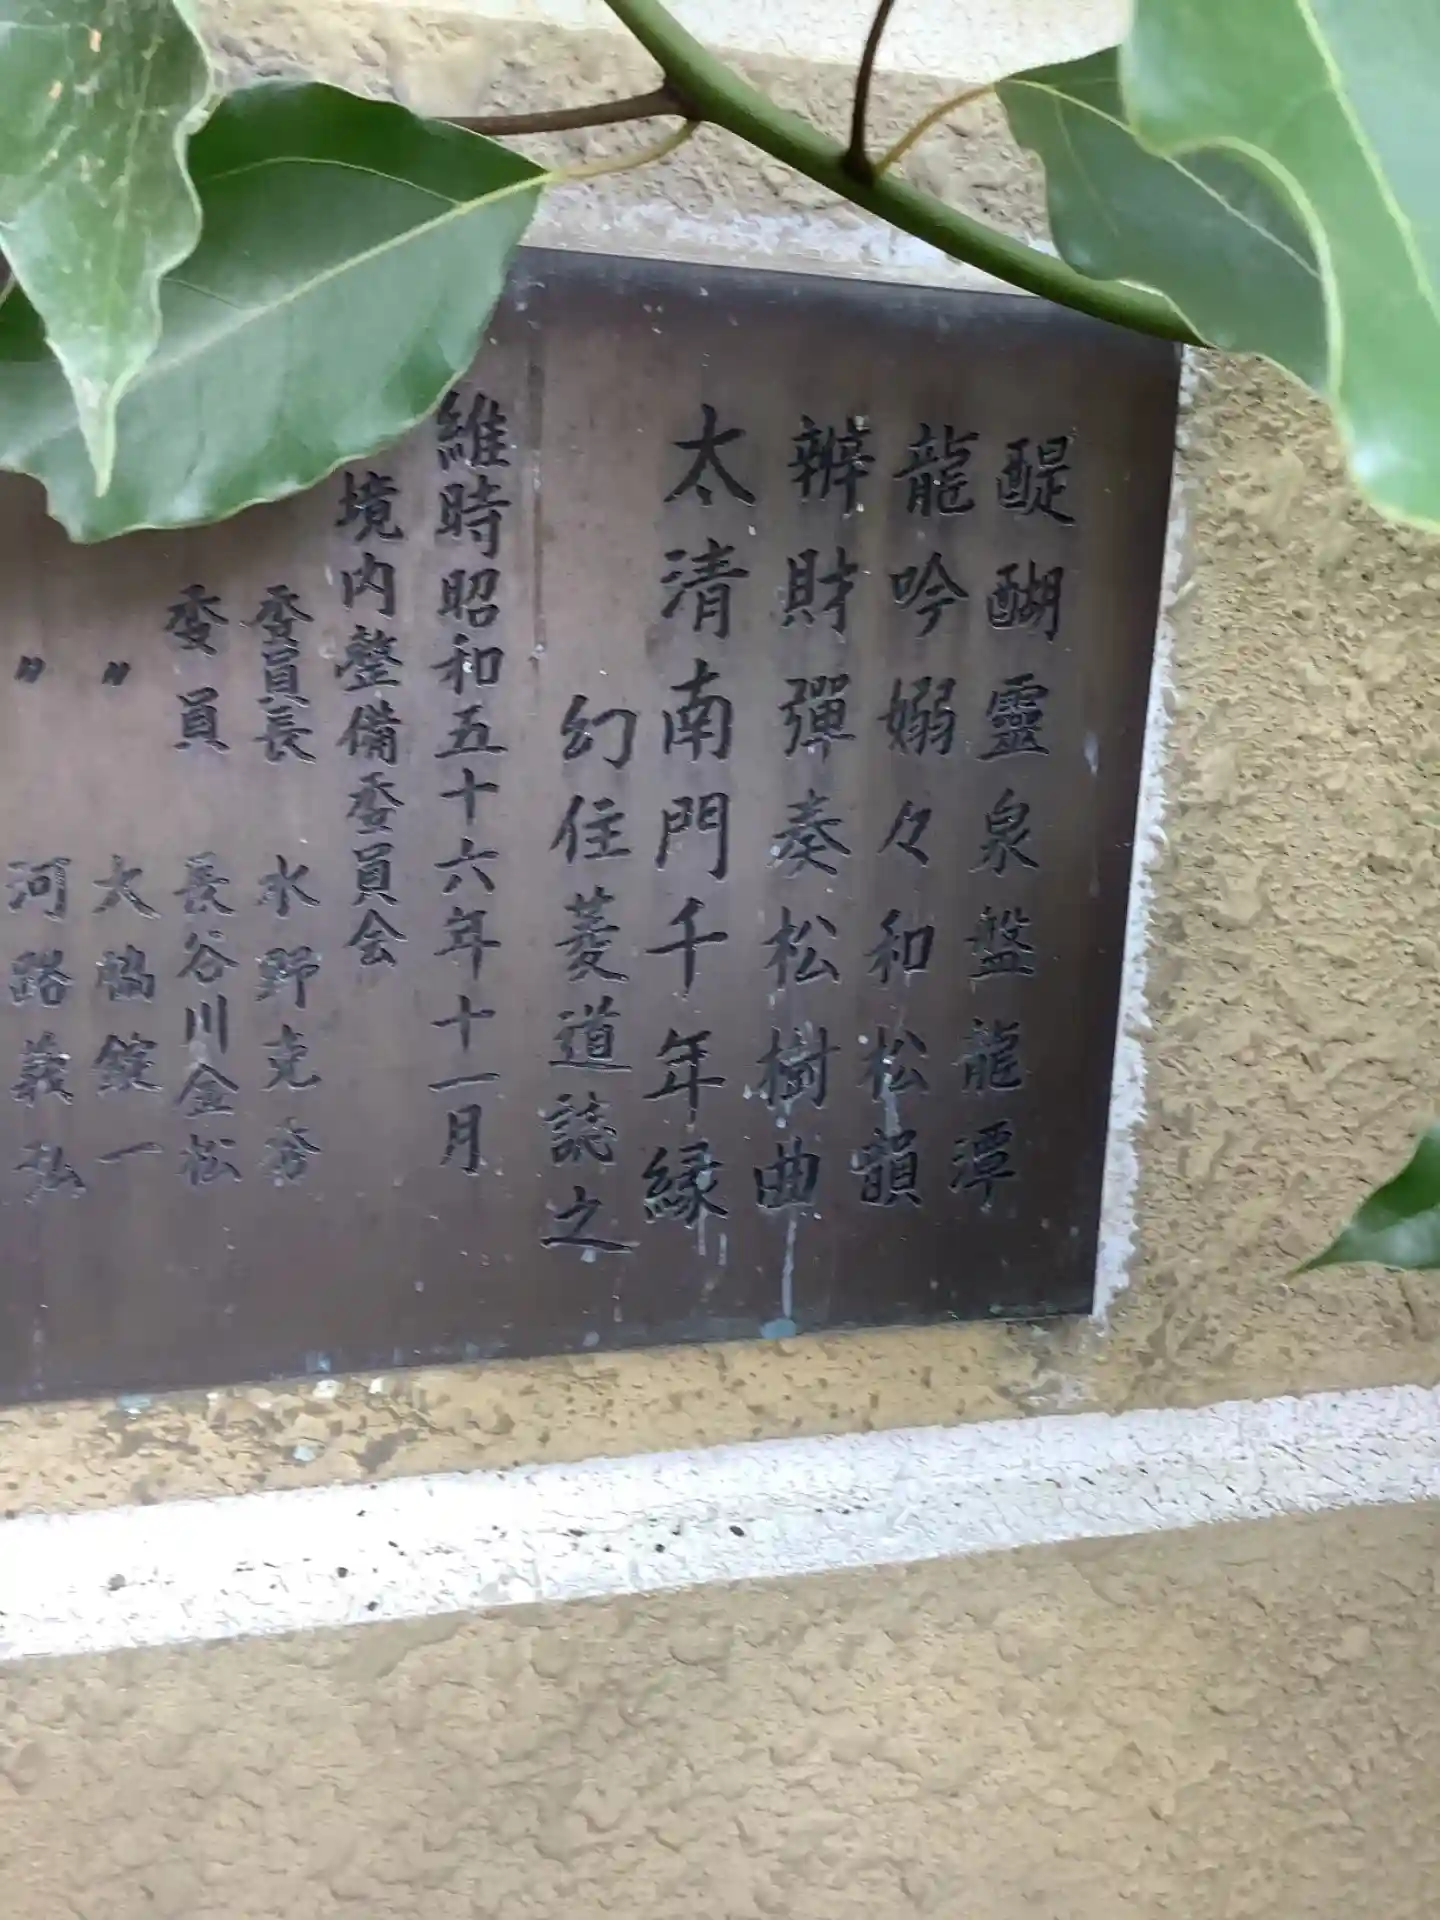 醍醐靈泉盤龍潭
龍吟嫋々和松韻
辨財彈奏松樹曲
太清南門千年緑
幻住菱道誌之
維時昭和五十六年十一月
境内整備委員会
委員長 水野克秀
委員 長谷川金松
〃 大脇錠一
〃 河路義弘